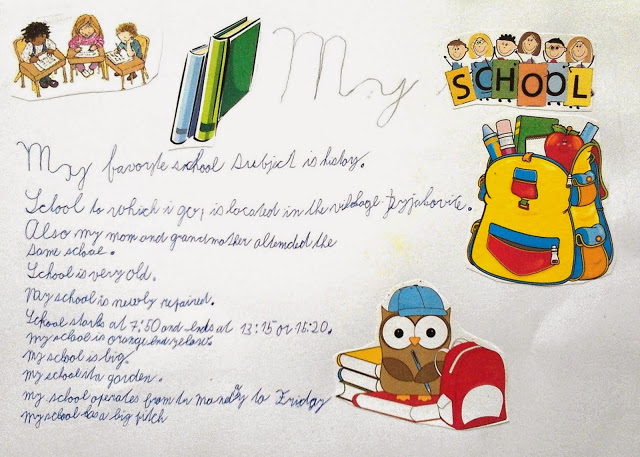 My SCHOOL
My favorite school subject is history.
School to which i go, is located in the village
Also my mom and grandmother attended the
same school.
School is very old.
My school is newly repaired.
School starts at 7:50 and ends at 13:15 or 15:20.
my school is orange
My school is big.
my school garden.
my school operates from to monday to Friday
My school has a big